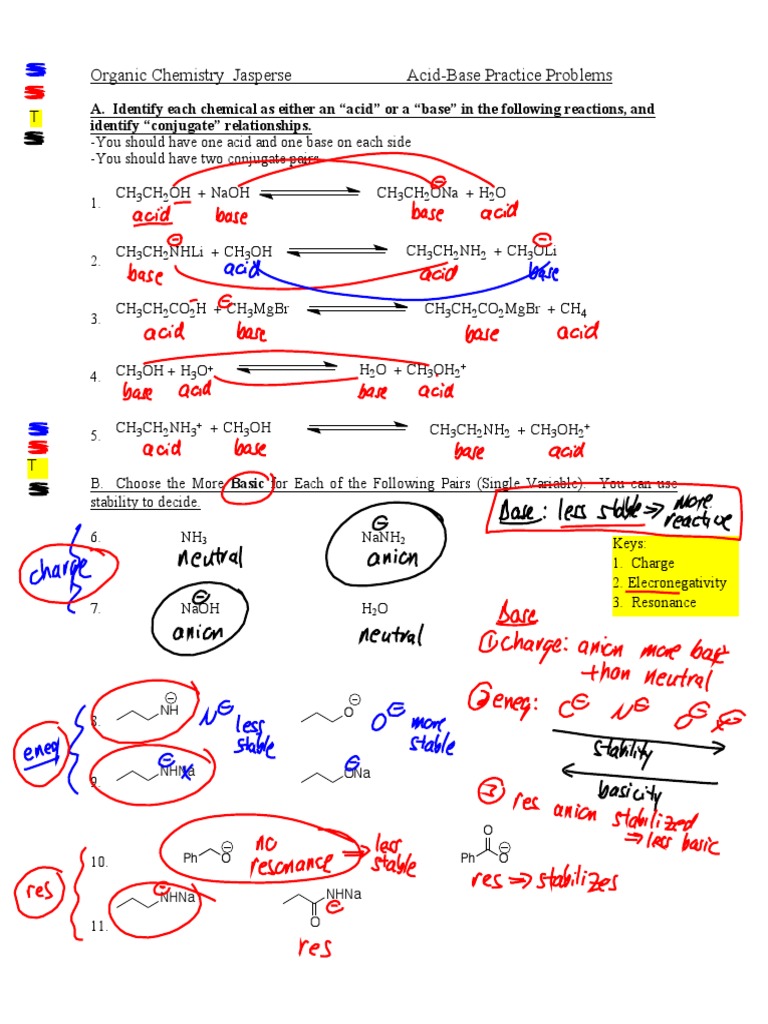 Organic Chemistry Jasperse Acid-Base Practice Problems
A. Identify each chemical as either an “acid” or a “base” in the following reactions, and
T
identify “conjugate” relationships.
S
-You should have one acid and one base on each side
-You should have two conjugate pairs
1. CH3CH2OH + NaOH CH3CH2ONa + H2O
acid base base acid
2. CH3CH2NHLi + CH3OH CH3CH2NH2 + CH3OLi
base acid acid base
3. CH3CH2CO2H + CH3MgBr CH3CH2CO2MgBr + CH4
acid base base acid
4. CH3OH + H3O+ H2O + CH3OH2+
base acid base acid
5. CH3CH2NH3+ + CH3OH CH3CH2NH2 + CH3OH2+
acid base base acid
T
B. Choose the More Basic for Each of the Following Pairs (Single Variable). You can use
stability to decide.
Base: less stable ⇒ more reactive
6. NH3 NaNH2
neutral anion
charge
Keys:
1. Charge
2. Elecronegativity
3. Resonance
7. NaOH H2O
anion neutral
Base
① charge: anion more basic
than neutral
② eneg: C⊖ N⊖ O⊖ X⊖
stability
basicity
8. NH O
N⊖ less stable O⊖ more stable
eneg
9. NHNa ONa
③ res anion stabilized
⇒ less basic
10. Ph O Ph O O
no resonance ⇒ less stable
res ⇒ stabilizes
res
11. NHNa NHNa
O
res